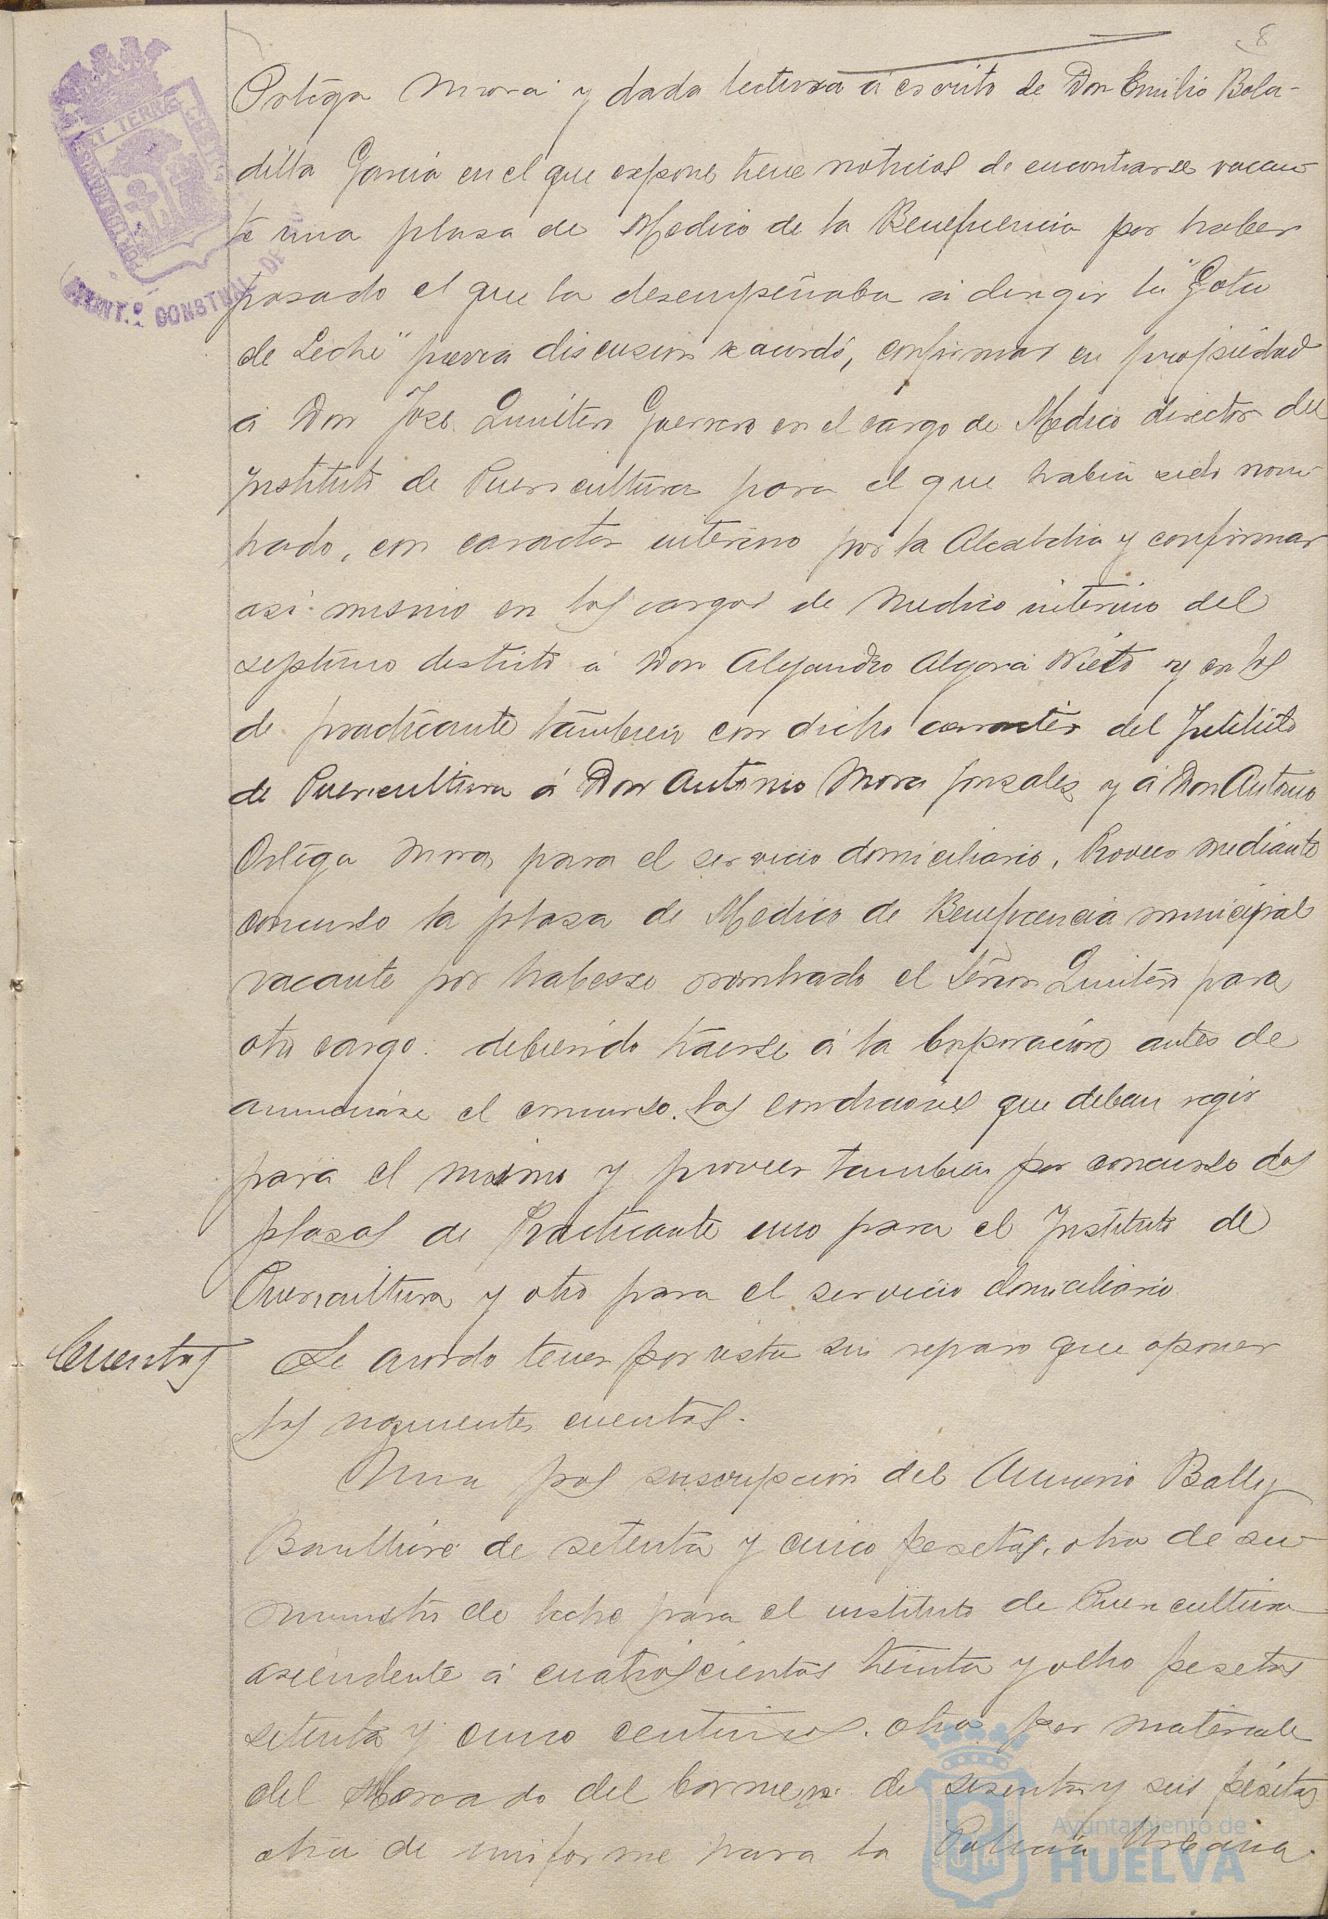 8
Ortega Mora y dada lectura á escrito de Don Emilio Boba-
dilla García en el que expone tiene noticias de encontrarse vacan-
te una plasa de Medico de la Beneficencia por haber
pasado el que la desempeñaba á dirigir la "Gota
de Leche" previa discusion se acordó, confirmar en propiedad
á Don Jose Quintero Guerrero en el cargo de Medico director del
Instituto de Puericultura para el que habia sido nom-
brado, con caracter interino por la Alcaldia y confirmar
asi mismo en los cargos de medico interino del
septimo distrito á Don Alejandro Algora Nieto y en los
de practicante tambien con dicho caracter del Intituto
de Puericultura á Don Antonio Mora Gonsales y á Don Antonio
Ortega Mora para el servicio domiciliario. Proveer mediante
concurso la plasa de Medico de Beneficencia municipal
vacante por haberse nombrado el Señor Quintero para
otro cargo. debiendo traerse á la Corporacion antes de
anunciarse el concurso. las condiciones que deban regir
para el mismo y proveer tambien por concurso dos
plasas de Practicante uno para el Instituto de
Puericultura y otro para el servicio domiciliario
Cuentas
Se acordo tener por vista sin reparo que oponer
las siguientes cuentas.
Una por suscripcion del Anuario Bally
Baulliere de setenta y cinco pesetas. otra de su-
ministro de leche para el instituto de Puericultura
ascendente á cuatroscientas treinta y ocho pesetas
setenta y cinco centimos. otra por materiale
del Mercado del Carmen de sesenta y seis pesetas
otra de uniforme para la Policia Urbana.
AYUNT.º CONSTNAL. DE
Ayuntamiento de
HUELVA